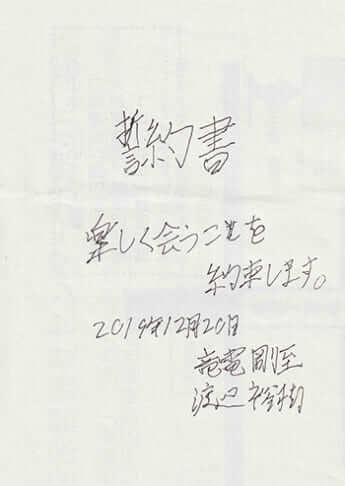 誓約書
楽しく会うことを
約束します。
2019年12月20日
竜電 剛至
渡辺 裕樹